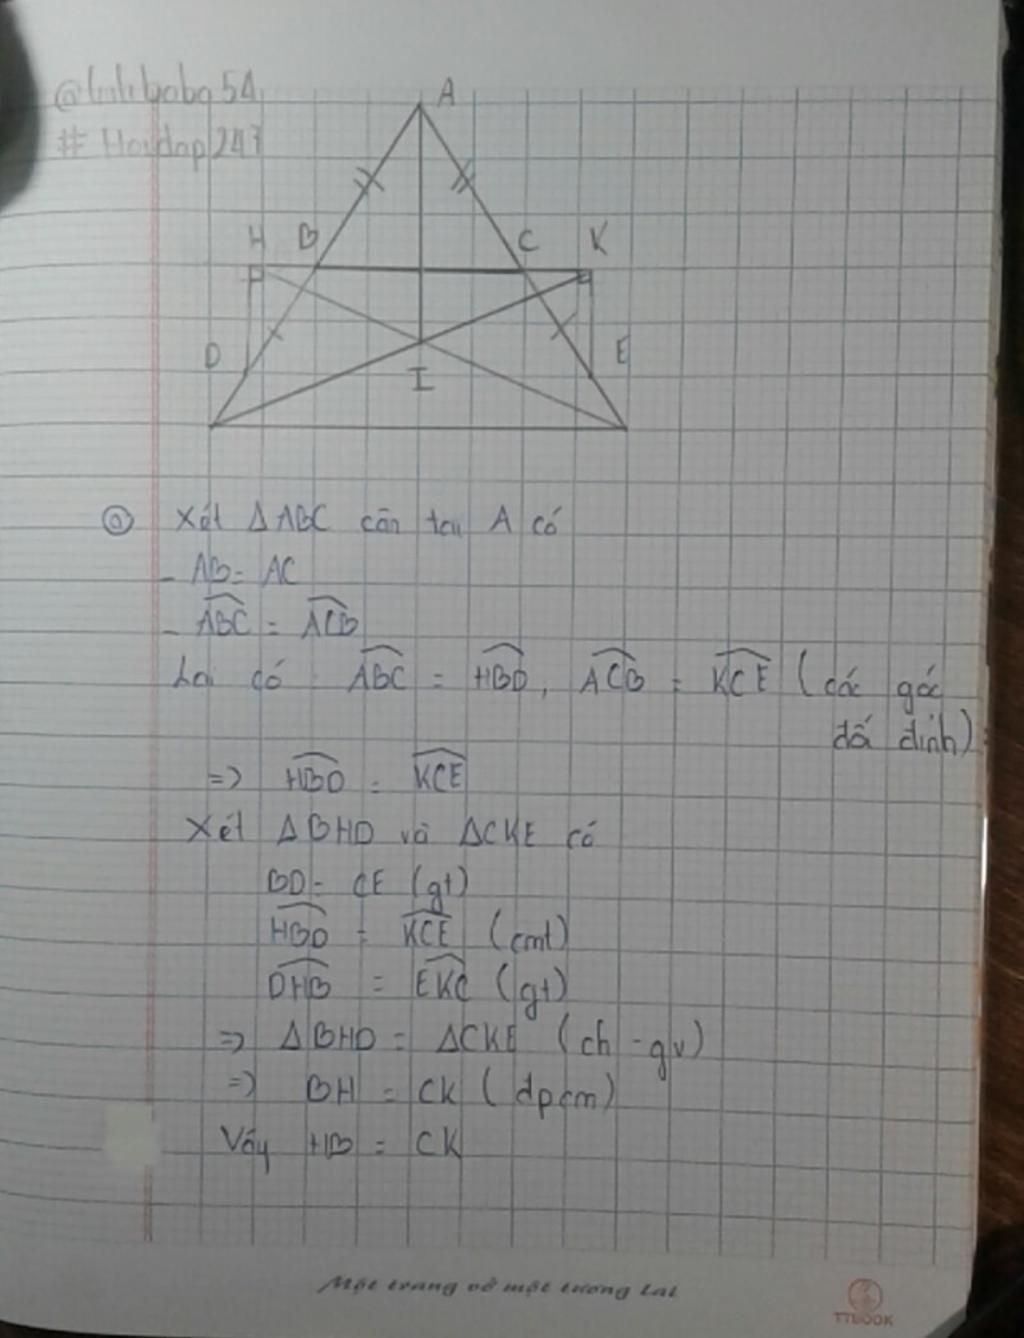 @linhbaba54
# Hoidap247
A
H B C K
D E
I
a Xét ΔABC cân tại A có
- AB = AC
- ABC = ACB
Lại có ABC = HBD, ACB = KCE (các góc
đối đỉnh)
=> HBD = KCE
Xét ΔBHD và ΔCKE có
BD = CE (gt)
HBD = KCE (cmt)
DHB = EKC (gt)
=> ΔBHD = ΔCKE (ch - gv)
=> BH = CK (dpcm)
Vậy HB = CK
Một trang vở một tương lai
TTBOOK